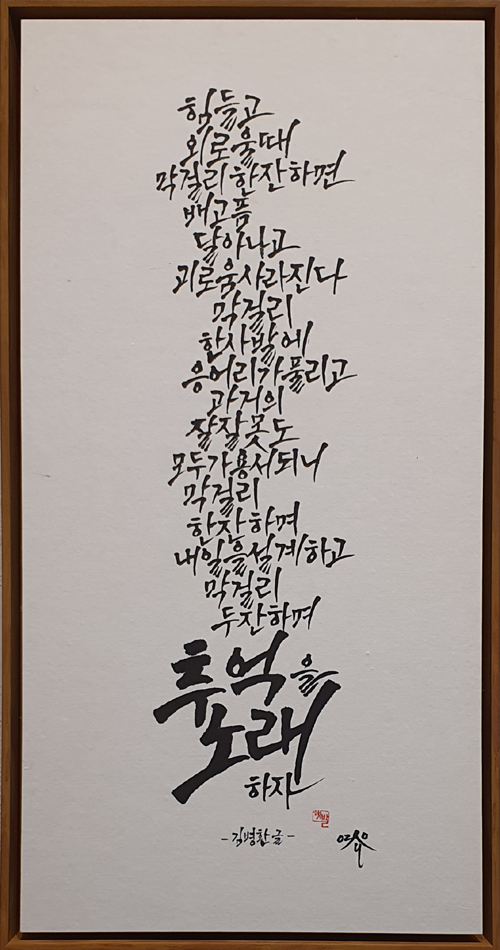 힘들고
외로울때
막걸리한잔하면
배고픔
달아나고
괴로움사라진다
막걸리
한사발에
응어리가풀리고
과거의
잘잘못도
모두가용서되니
막걸리
한잔하며
내일을설계하고
막걸리
두잔하며
추억을
노래
하자
-김병환글-